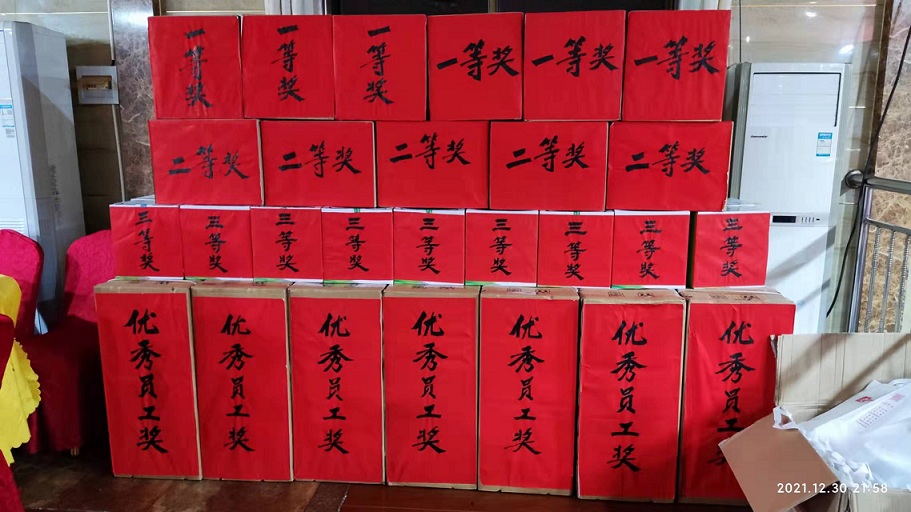 一等奖
一等奖
一等奖
一等奖
一等奖
一等奖
二等奖
二等奖
二等奖
二等奖
二等奖
三等奖
三等奖
三等奖
三等奖
三等奖
三等奖
三等奖
三等奖
三等奖
优秀员工奖
优秀员工奖
优秀员工奖
优秀员工奖
优秀员工奖
优秀员工奖
优秀员工奖
2021.12.30 21:58